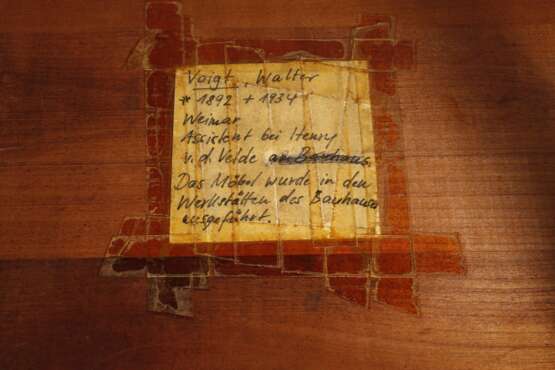 Voigt, Walter
* 1892 + 1934
Weimar
Assistent bei Henry
v. d. Velde am Bauhaus.
Das Möbel wurde in den
Werkstätten des Bauhauses
ausgeführt.